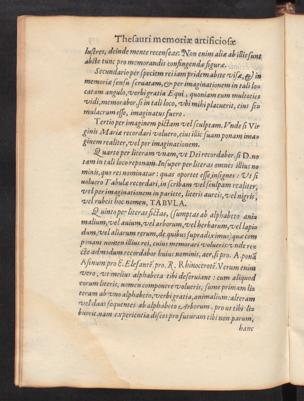 Thesauri memoriæ artificiosæ
lustres, deinde mente recenseas. Non enim aliæ ab illis sunt
abs te tunc pro memorandis confingendæ figuræ.
Secundario per speciem rei iam pridem abs te visæ, & in
memoriæ sensu seruatam, & per imaginationem in tali lo
catam angulo, verbi gratia Equi, quoniam eum multoties
vidi, memorabor, si in tali loco, vbi mihi placuerit, eius si
mulacrum esse, imaginatus fuero.
Tertio per imaginem pictam vel sculptam. Vnde si Vir
ginis Mariæ recordari voluero, eius illic suam ponam ima
ginem realiter, vel per imaginationem.
Quarto per literam vnam, vt Dei recordaber, si D. no
tam in tali loco reponam. Insuper per literas omnes illius no
minis, quo res nominatur: quas oportet esse insignes: Vt si
voluero Tabulæ recordari, inscribam vel sculpam realiter,
vel per imaginationem in pariete, literis aureis, vel nigris,
vel rubeis hoc nomen, TABVLA.
Quinto per literas fictas, sumptas ab alphabeto ani
malium, vel auium, vel arborum, vel herbarum, vel lapi
dum, vel aliarum rerum, de quibus supra diximus: quæ com
ponant nomen illius rei, cuius memorari volueris: vnde re
cte admodum recordabor huius nominis, aer, si pro. A. ponā
Asinum pro E. Elefantē. pro. R. Rhinocerotē. Verum enim
vero, vt melius alphabeta tibi deseruiant: cum aliquod
eorum literis, nomen componere volueris, sume primam li
teram ab vno alphabeto, verbi gratia, animalium: alteram
vel duas sequentes ab alphabeto Arborum, pro vt tibi li
buerit, nam experientia disces pro futuram tibi non parum,
hanc